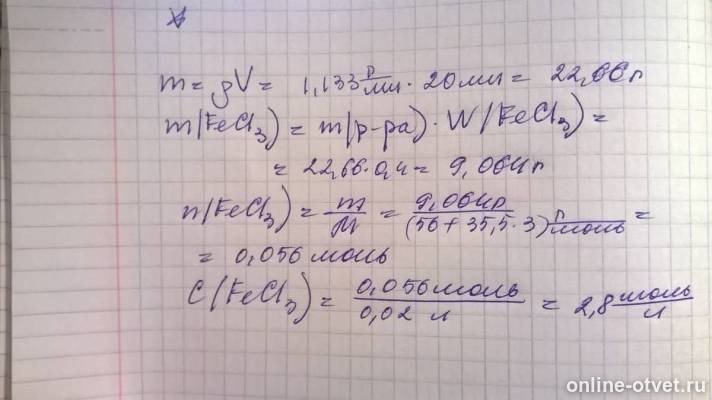 m = ρV = 1,133 г/мл · 20 мл = 22,66 г
m(FeCl₃) = m(р-ра) · W(FeCl₃) =
= 22,66 · 0,4 = 9,064 г
n(FeCl₃) = m/M = 9,064 г/(56 + 35,5 · 3) г/моль =
= 0,056 моль
C(FeCl₃) = 0,056 моль/0,02 л = 2,8 моль/л
online-otvet.ru